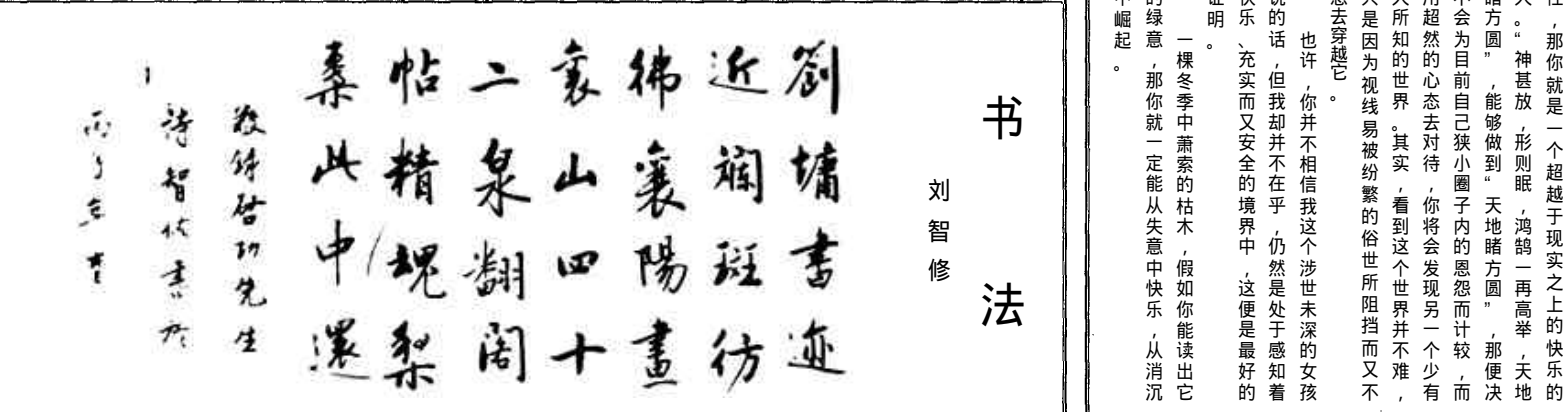 ，那你就是一个超越于现实之上的快乐的
人。“神甚放，形则眠，鸿鹄一再高举，天地
睹方圆”，能够做到“天地睹方圆”，那便决
不会为目前自己狭小圈子内的恩怨而计较，而
用超然的心态去对待，你将会发现另一个少有
人所知的世界。其实，看到这个世界并不难，
只是因为视线易被纷繁的俗世所阻挡而又不
想去穿越它。
也许，你并不相信我这个涉世未深的女孩
说的话，但我却并不在乎，仍然是处于感知着
快乐、充实而又安全的境界中，这便是最好的
证明。
一棵冬季中萧索的枯木，假如你能读出它
的绿意，那你就一定能从失意中快乐，从消沉
中崛起。
书法
刘智修
劉墉書迹
近斕斑彷
彿襄陽畫
裏山四十
二泉翻閣
帖精魂梨
棗此中還
敬録啓功先生
詩智修書於
丙子